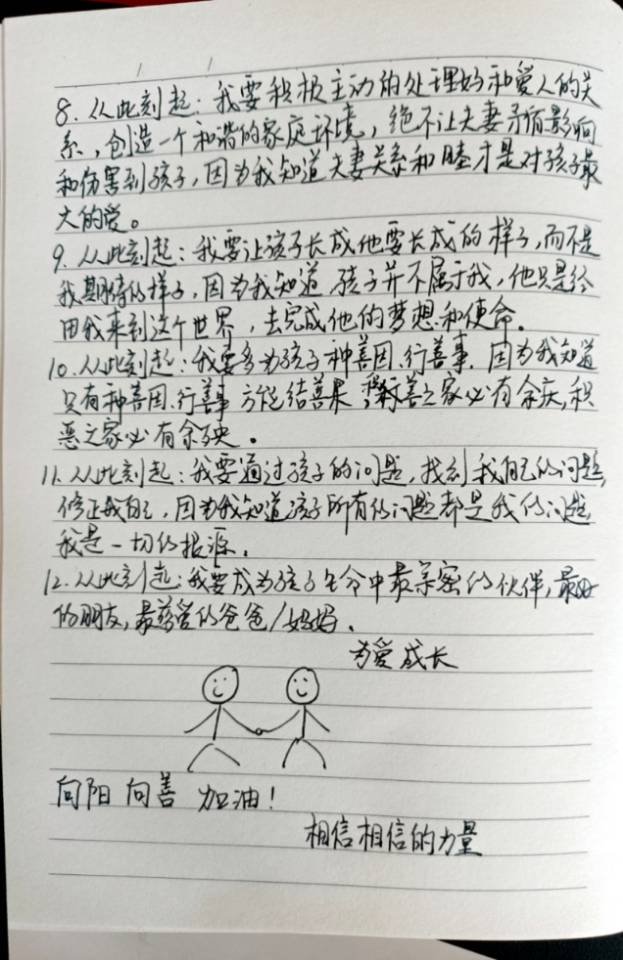 8. 从此刻起：我要积极主动的处理好和爱人的关
系，创造一个和谐的家庭环境，绝不让夫妻矛盾影响
和伤害到孩子，因为我知道夫妻关系和睦才是对孩子最
大的爱。
9. 从此刻起：我要让孩子长成他要长成的样子，而不是
我期待的样子，因为我知道孩子并不属于我，他只是经
由我来到这个世界，去完成他的梦想和使命。
10. 从此刻起：我要多为孩子种善因、行善事，因为我知道
只有种善因、行善事方能结善果，行善之家必有余庆，积
恶之家必有余殃。
11. 从此刻起：我要通过孩子的问题，找到我自己的问题，
修正我自己，因为我知道孩子所有的问题都是我的问题
我是一切的根源。
12. 从此刻起：我要成为孩子生命中最亲密的伙伴，最好
的朋友，最慈爱的爸爸/妈妈。
为爱成长
向阳 向善 加油！
相信相信的力量